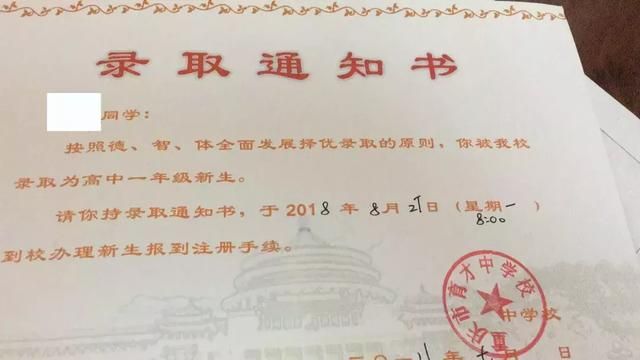 录取通知书
同学：
按照德、智、体全面发展择优录取的原则，你被我校
录取为高中一年级新生。
请你持录取通知书，于 2018 年 8月 27日（星期一）
8:00
到校办理新生报到注册手续。
重庆市育才中学校
中学校